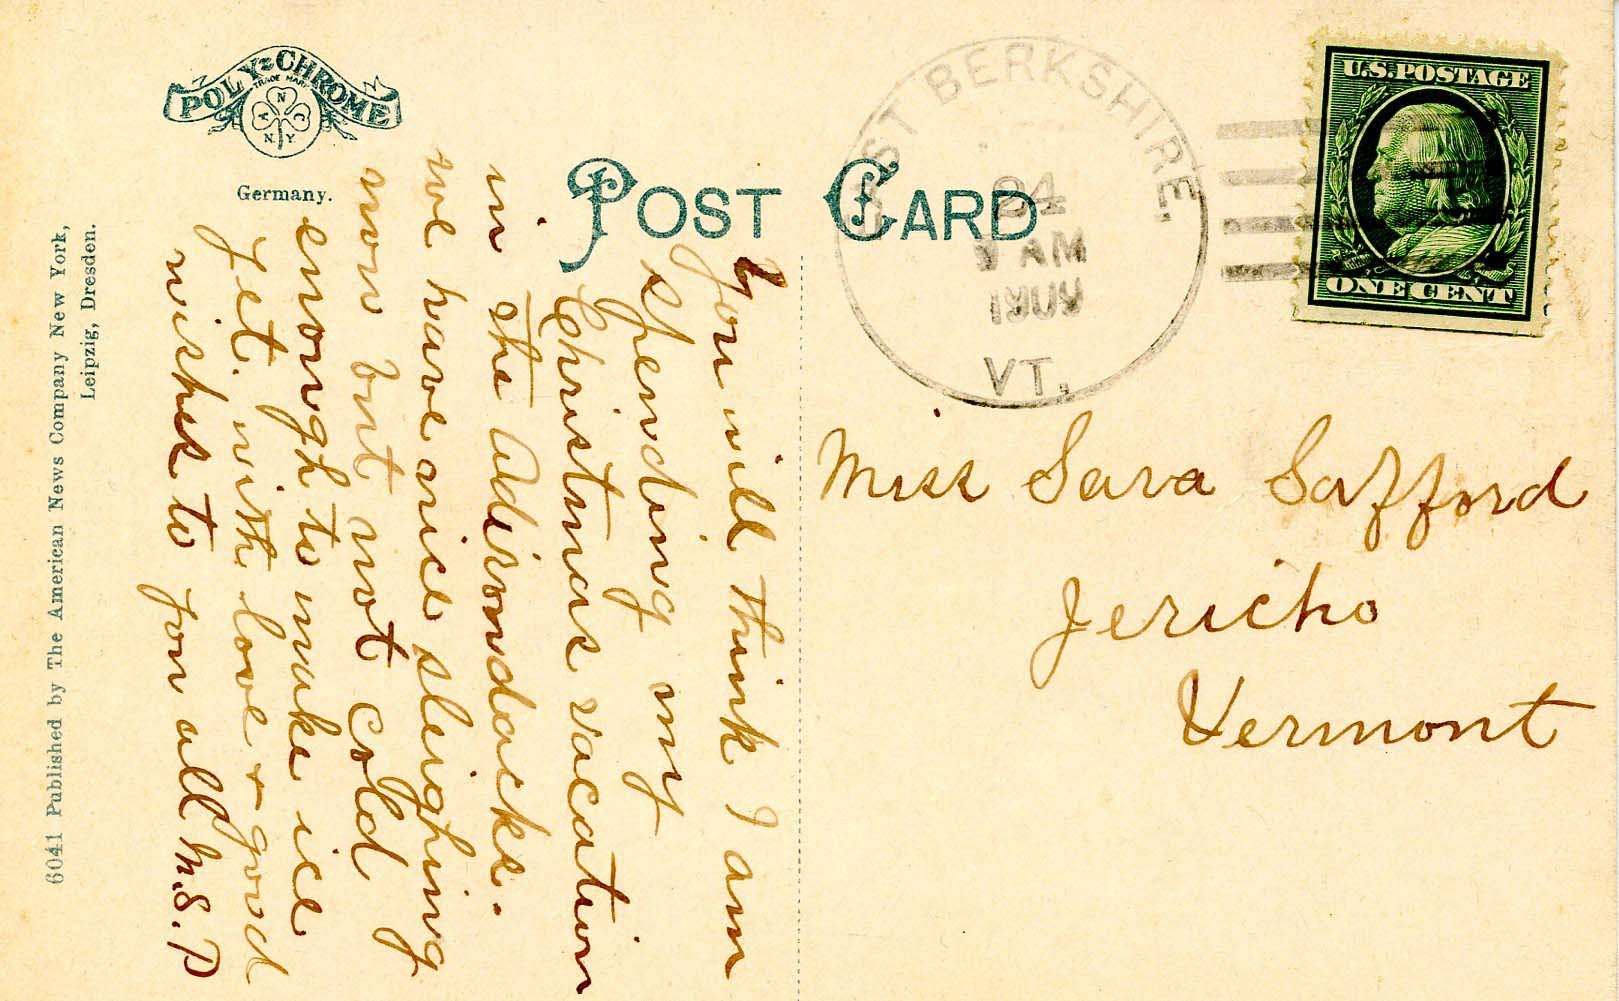 POLY=CHROME
TRADE MARK
A N C
N. Y.
Germany.
POST CARD
6041 Published by The American News Company New York,
Leipzig, Dresden.
ST BERKSHIRE,
24
AM
1909
VT.
U.S. POSTAGE
ONE CENT
You will think I am
spending my
Christmas vacation
in the Adirondacks.
we have nice sleighing
now but not cold
enough to make ice
yet. with love & good
wishes to you all M.S.P
Miss Sara Safford
Jericho
Vermont